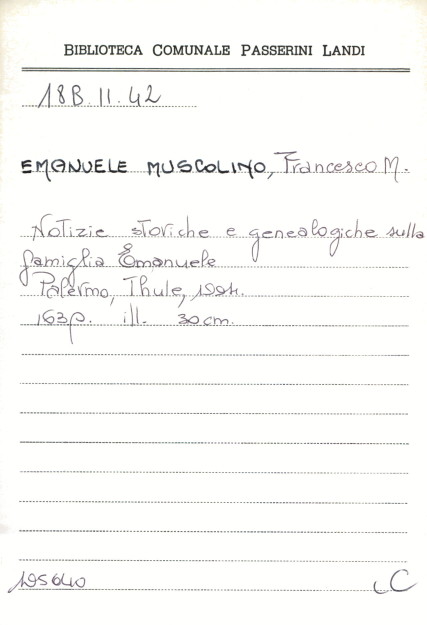 BIBLIOTECA COMUNALE PASSERINI LANDI
18B.II.42
EMANUELE MUSCOLINO, Francesco M.
Notizie storiche e genealogiche sulla
famiglia Emanuele
Palermo, Thule, 1994.
163p. ill. 30cm.
195640